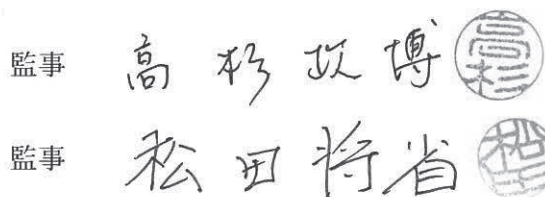 監事 高杉政博 高杉
監事 松田将省